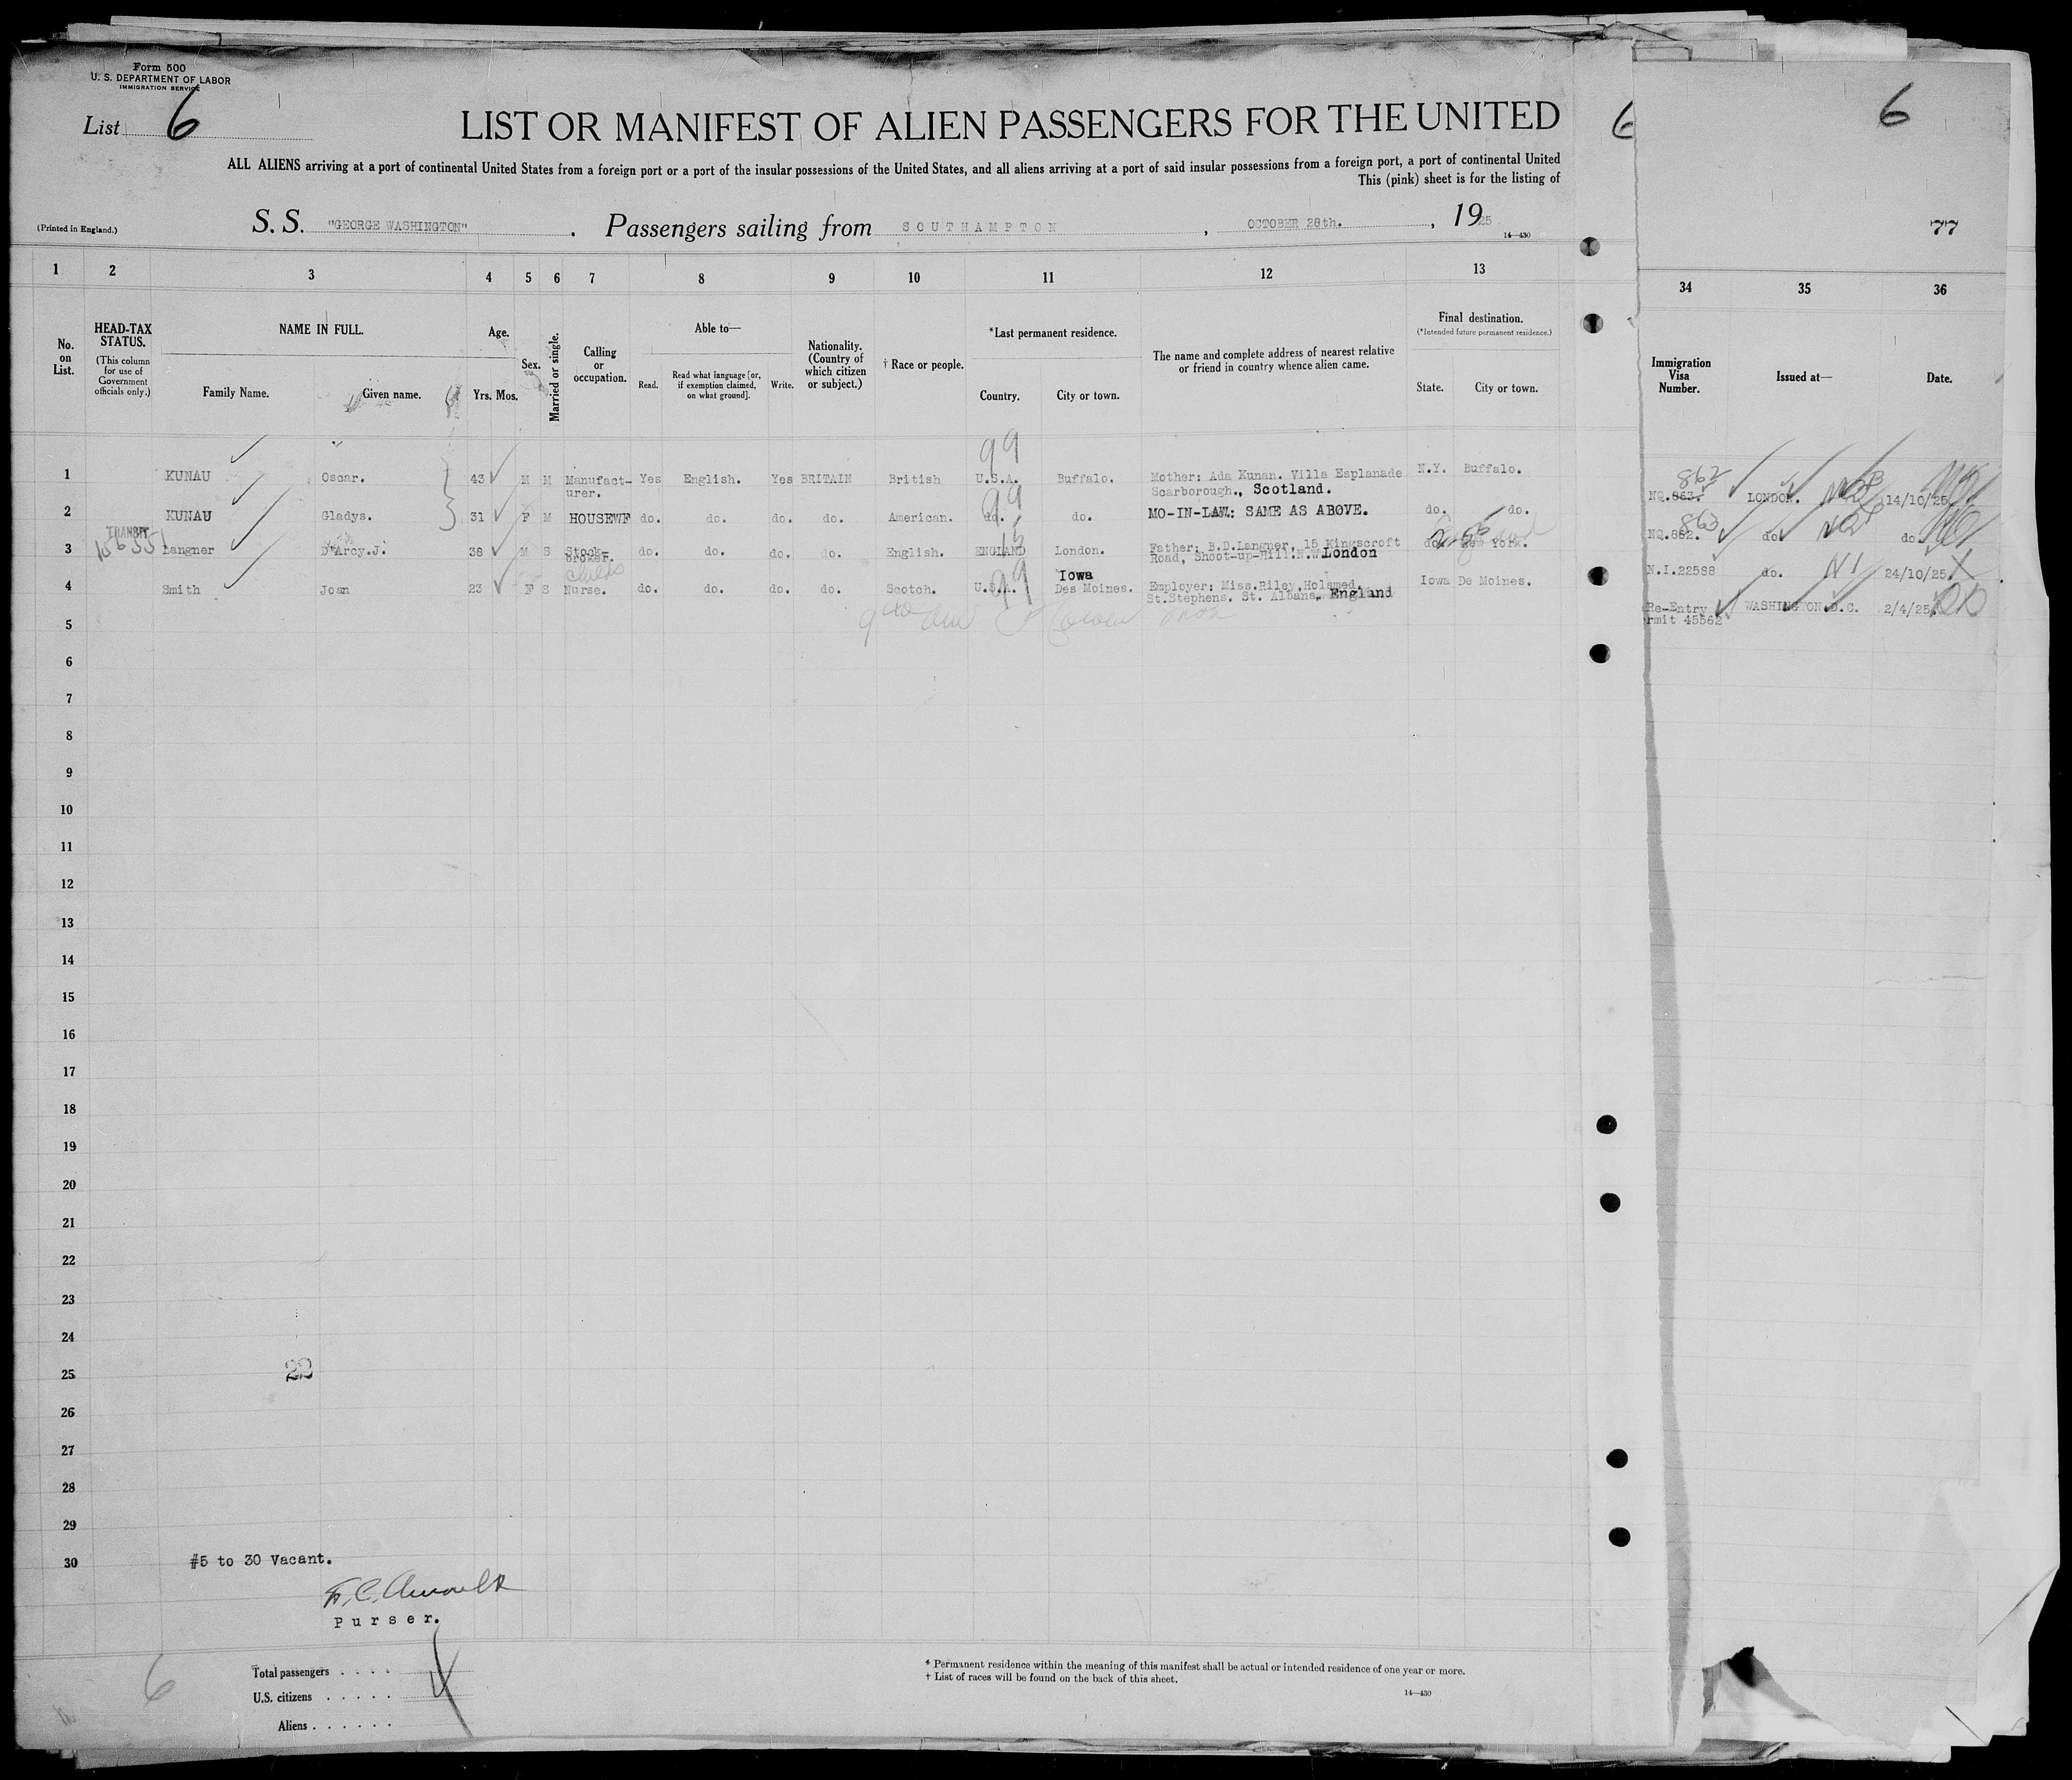 Form 500
U. S. DEPARTMENT OF LABOR
IMMIGRATION SERVICE
List 6
LIST OR MANIFEST OF ALIEN PASSENGERS FOR THE UNITED
6
6
ALL ALIENS arriving at a port of continental United States from a foreign port or a port of the insular possessions of the United States, and all aliens arriving at a port of said insular possessions from a foreign port, a port of continental United
This (pink) sheet is for the listing of
(Printed in England.)
S. S. "GEORGE WASHINGTON" . Passengers sailing from SOUTHAMPTON , OCTOBER 28th. , 1925
14—430
77
1 2 3 4 5 6 7 8 9 10 11 12 13 34 35 36
No. on List.
HEAD-TAX STATUS.
(This column for use of Government officials only.)
NAME IN FULL.
Family Name. Given name.
Age.
Yrs. Mos.
Sex.
Married or single.
Calling or occupation.
Able to—
Read. Read what language [or, if exemption claimed, on what ground]. Write.
Nationality. (Country of which citizen or subject.)
† Race or people.
*Last permanent residence.
Country. City or town.
The name and complete address of nearest relative or friend in country whence alien came.
Final destination.
(*Intended future permanent residence.)
State. City or town.
Immigration Visa Number.
Issued at—
Date.
99
862
1 KUNAU Oscar. 43 M M Manufact- Yes English. Yes BRITAIN British U.S.A. Buffalo. Mother: Ada Kunan. Villa Esplanade N.Y. Buffalo. NQ.863. LONDON. 14/10/25
urer. Scarborough., Scotland.
99
863
2 KUNAU Gladys. 31 F M HOUSEWF do. do. do. do. American. do. do. MO-IN-LAW: SAME AS ABOVE. do. do. NQ.862. do. do.
TRANSIT
3 Langner D'Arcy.J. 38 M S Stock- do. do. do. do. English. ENGLAND London. Father: B.D.Langner, 15 Kingscroft do. New York. N.I.22588 do. N I 24/10/25.
broker. Road, Shoot-up-Hill.N.W.London
childs
99
Iowa
4 Smith Joan 23 F S Nurse. do. do. do. do. Scotch. U.S.A. Des Moines. Employer: Miss.Riley,Holsmed. Iowa De Moines. Re-Entry WASHINGTON D.C. 2/4/25.
St.Stephens. St. Albans, England
rmit 45562
5
6
7
8
9
10
11
12
13
14
15
16
17
18
19
20
21
22
23
24
25 22
26
27
28
29
30 #5 to 30 Vacant.
Purser.
6
Total passengers . . . . 4
U.S. citizens . . . . .
Aliens . . . . . .
* Permanent residence within the meaning of this manifest shall be actual or intended residence of one year or more.
† List of races will be found on the back of this sheet.
14—430